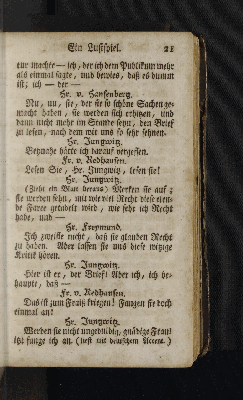 Ein Lustspiel. 21
tur machte — ich, der ich dem Publikum mehr
als einmal sagte, und bewies, daß es dumm
ist; ich — der —
Hr. v. Hansenberg.
Nu, nu, sie, der sie so schöne Sachen ge-
macht haben, sie werden sich erhitzen, und
dann nicht mehr im Stande seyn, den Brief
zu lesen, nach dem wir uns so sehr sehnen.
Hr. Jungwitz.
Beynahe hätte ich darauf vergessen.
Fr. v. Redhausen.
Lesen Sie, Hr. Jungwitz, lesen sie!
Hr. Jungwitz.
(Zieht ein Blatt heraus) Merken sie auf;
sie werden sehn, mit wie viel Recht diese elen-
de Farce getadelt wird, wie sehr ich Recht
habe, und —
Hr. Freymund.
Ich zweifle nicht, daß sie glauben Recht
zu haben. Aber lassen sie uns diese witzige
Kritik hören.
Hr. Jungwitz.
Hier ist er, der Brief! Aber ich, ich be-
haupte, daß —
Fr. v. Redhausen.
Das ist zum Fraiß kriegen! Fangen sie doch
einmal an!
Hr. Jungwitz.
Werden sie nicht ungeduldig, gnädige Frau!
itzt fange ich an. (liest mit